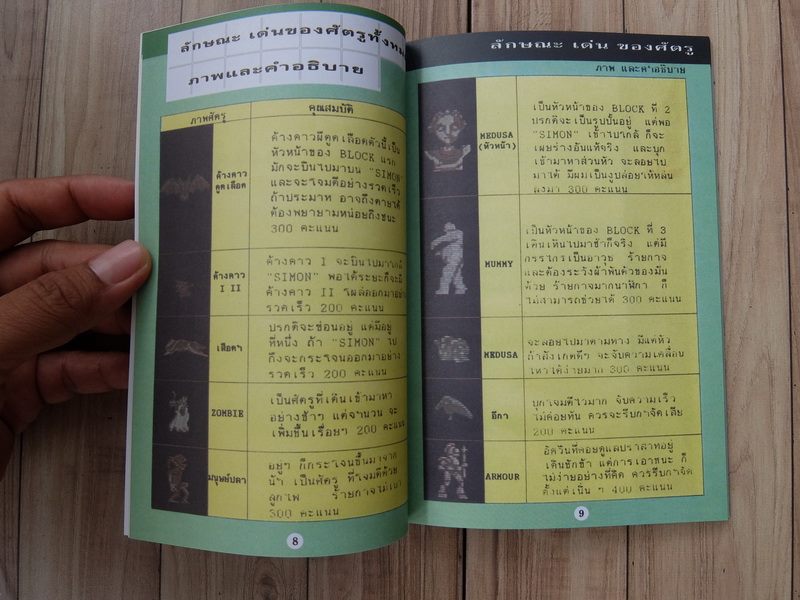 ลักษณะ เด่นของศัตรูทั้งหม
ภาพและคำอธิบาย
ภาพศัตรู
คุณสมบัติ
ค้างคาว
ดูดเลือด
ค้างคาวผีดูดเลือดตัวนี้เป็น
หัวหน้าของ BLOCK แรก
มักจะบินไปมาบน "SIMON"
และจะโจมตีอย่างรวดเร็ว
ถ้าประมาท อาจถึงตายได้
ต้องพยายามหน่อยถึงชนะ
300 คะแนน
ค้างคาว
I II
ค้างคาว I จะบินไปมา
"SIMON" พอได้ระยะก็จะมี
ค้างคาว II โผล่ออกมาอย่าง
รวดเร็ว 200 คะแนน
เสือดำ
ปรกติจะซ่อนอยู่ แค่มีอยู่
ที่หนึ่ง ถ้า "SIMON" ไป
ถึงจะกระโจนออกมาอย่าง
รวดเร็ว 200 คะแนน
ZOMBIE
เป็นศัตรูที่เดินเข้ามาหา
อย่างช้าๆ แต่จำนวน จะ
เพิ่มขึ้นเรื่อยๆ 200 คะแนน
มนุษย์ปลา
อยู่ๆ ก็กระโจนขึ้นมาจาก
น้ำ เป็นศัตรู ที่โจมตีด้วย
ลูกไฟ ร้ายกาจไม่เบา
300 คะแนน
8
ลักษณะ เด่น ของศัตรู
ภาพ และคำอธิบาย
MEDUSA
(หัวหน้า)
เป็นหัวหน้าของ BLOCK ที่ 2
ปรกติจะเป็นรูปปั้นอยู่ แต่พอ
"SIMON" เข้าไปใกล้ ก็จะ
เผยร่างอันแท้จริง และบุก
เข้ามาหาส่วนหัว จะลอยไป
มาได้ มีผมเป็นงูปล่อยให้หล่น
ลงมา 300 คะแนน
MUMMY
เป็นหัวหน้าของ BLOCK ที่ 3
เดินเหินไปมาช้าก็จริง แต่มี
กรรไกรเป็นอาวุธ ร้ายกาจ
และต้องระวังผ้าพันตัวของมัน
ด้วย ร้ายกาจมากนาฬิกา ก็
ไม่สามารถช่วยได้ 300 คะแนน
MEDUSA
จะลอยไปมาตามทาง มีแต่หัว
ถ้าสังเกตดีๆ จะจับความเคลื่อน
ไหวได้ง่ายมาก 300 คะแนน
อีกา
บุกโจมตีไวมาก จับความเร็ว
ไม่ค่อยทัน ควรจะรีบกำจัดเสีย
200 คะแนน
ARMOUR
อัศวินที่คอยดูแลปราสาทอยู่
เดินชักช้า แต่การเอาชนะ ก็
ไม่ง่ายอย่างที่คิด ควรรีบกำจัด
ตั้งแต่เนิ่น ๆ 400 คะแนน
9